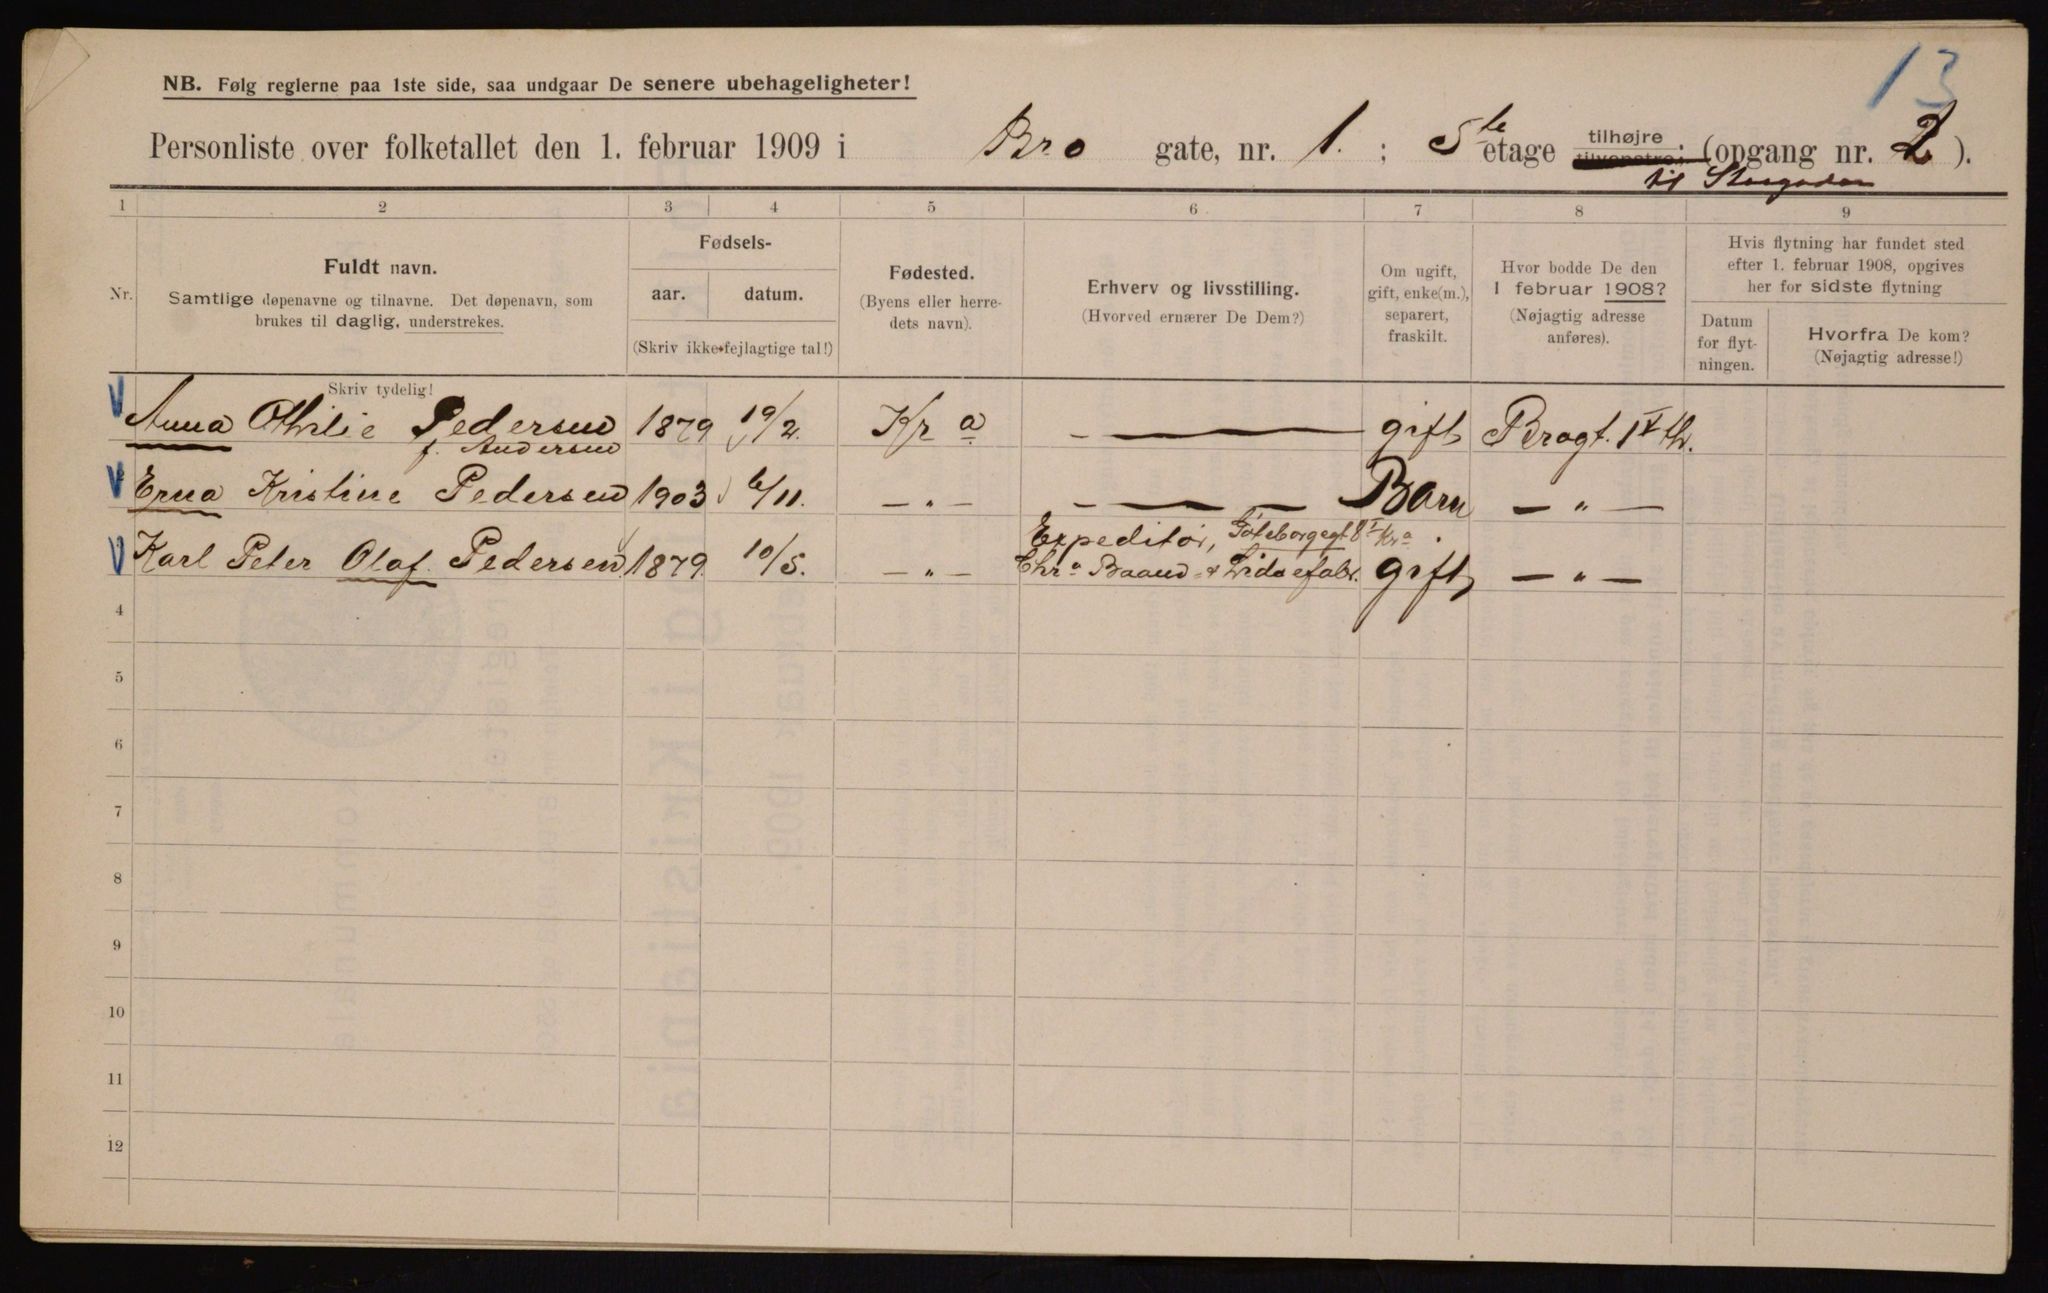 13
NB. Følg reglerne paa 1ste side, saa undgaar De senere ubehageligheter!
Personliste over folketallet den 1. februar 1909 i Bro gate, nr. 1. ; 5te etage tilhøjre tilvenstre; (opgang nr. 2 ).
til Storgaden
1 2 3 4 5 6 7 8 9
Nr.
Fuldt navn.
Samtlige døpenavne og tilnavne. Det døpenavn, som
brukes til daglig, understrekes.
Fødsels-
aar. datum.
(Skriv ikke fejlagtige tal!)
Fødested.
(Byens eller herre-
dets navn).
Erhverv og livsstilling.
(Hvorved ernærer De Dem?)
Om ugift,
gift, enke(m.),
separert,
fraskilt.
Hvor bodde De den
1 februar 1908?
(Nøjagtig adresse
anføres).
Hvis flytning har fundet sted
efter 1. februar 1908, opgives
her for sidste flytning
Datum
for flyt-
ningen.
Hvorfra De kom?
(Nøjagtig adresse!)
Skriv tydelig!
Anna Othilie Pedersen 1879 19/2. Kra — gift Brogt. 1 V th.
f. Andersen
Erna Kristine Pedersen 1903 6/11. — " — — Barn — " —
Expeditør, Göteborggt 8 I Kra.
Karl Peter Olaf Pedersen 1879. 10/5. — " — Chra Baand- & Lidsefabr. gift — " —
4
5
6
7
8
9
10
11
12